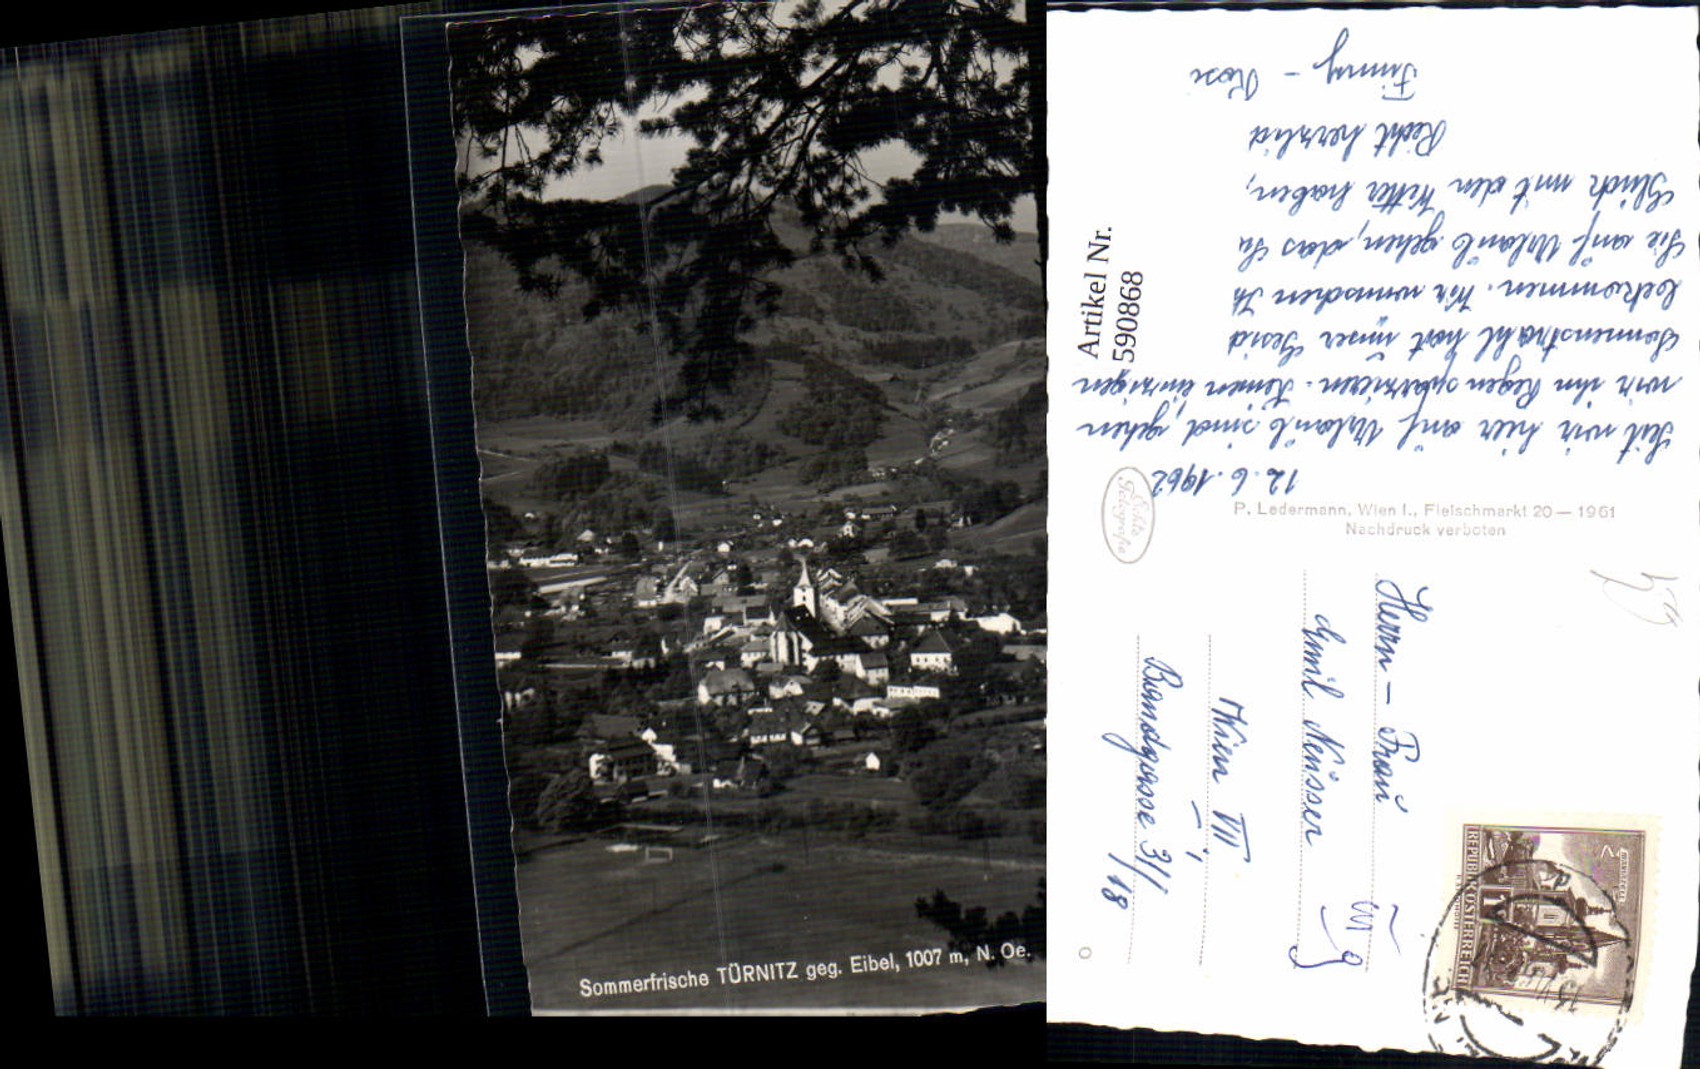 Sommerfrische TÜRNITZ geg. Eibel, 1007 m, N. Oe.
Artikel Nr.
590868
12.6.1962
Seit wir hier auf Urlaub sind gehen
wir im Regen spazieren. Keinen einzigen
Sonnenstrahl hat unser Gesich
bekommen. Wir wünschen Ih
Sie auf Urlaub gehen, das Si
Glück mit den Wetter haben,
Recht herzlich
P. Ledermann, Wien I., Fleischmarkt 20 — 1961
Nachdruck verboten
Echte
Fotografie
Herrn – Frau
Emil Neüsser
Wien VII
Bandgasse 31/
/18
REPUBLIK ÖSTERREICH